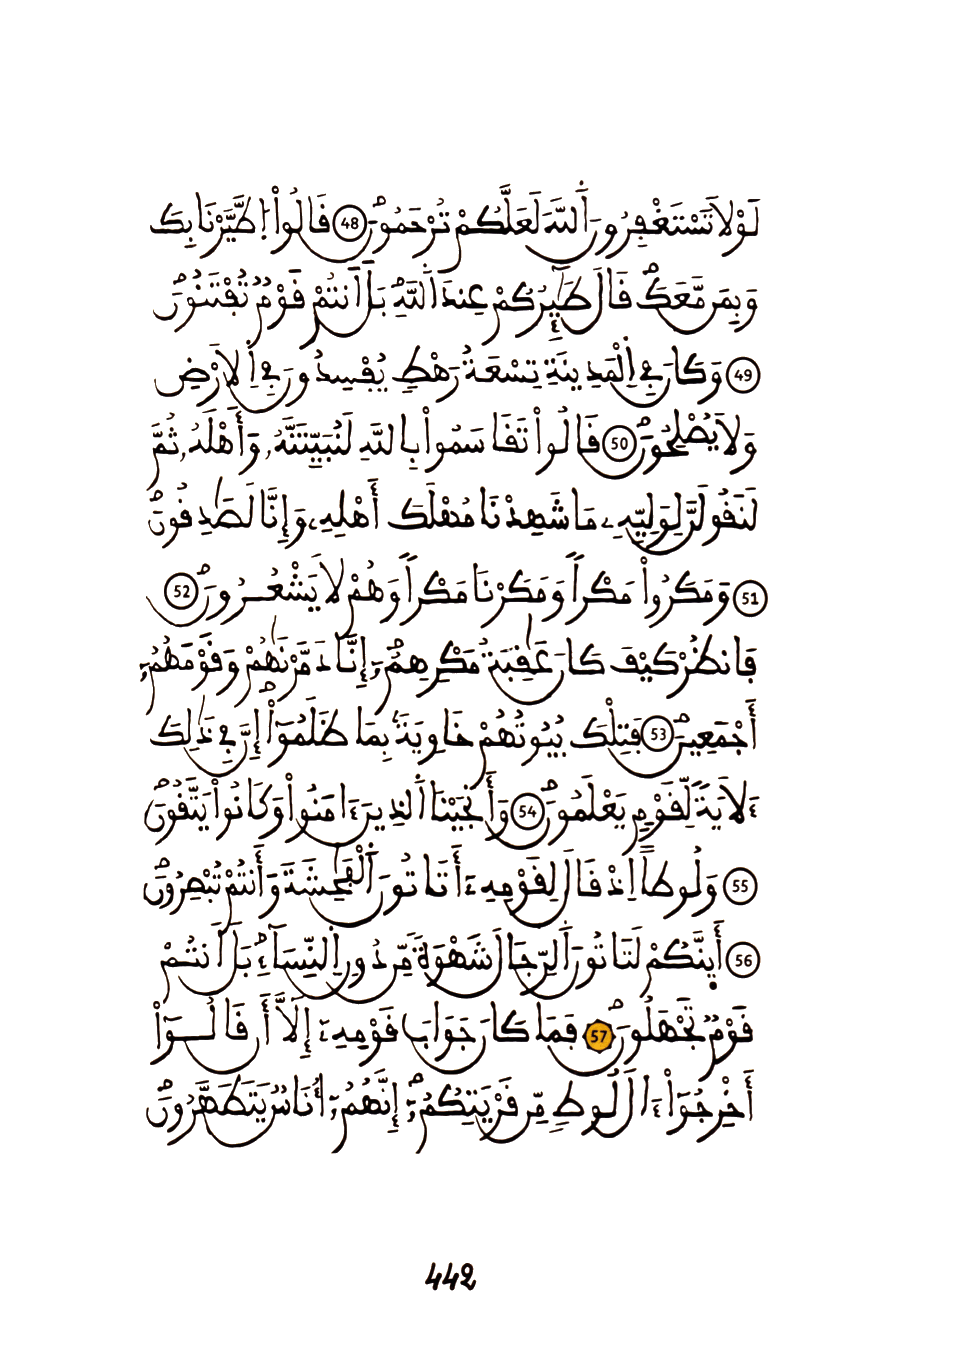 لَوْلَا تَسْتَغْفِرُونَ اَللَّهَ لَعَلَّكُمْ تُرْحَمُونَ 48 قَالُواْ اُ۪طَّيَّرْنَا بِكَ
وَبِمَن مَّعَكَ قَالَ طَٰٓئِرُكُمْ عِندَ اَللَّهِ بَلَ اَنتُمْ قَوْمٞ تُفْتَنُونَ
49 وَكَانَ فِے اِ۬لْمَدِينَةِ تِسْعَةُ رَهْطٖ يُفْسِدُونَ فِے اِ۬لَارْضِ
وَلَا يُصْلِحُونَ 50 قَالُواْ تَقَاسَمُواْ بِاللَّهِ لَنُبَيِّتَنَّهُۥ وَأَهْلَهُۥ ثُمَّ
لَنَقُولَنَّ لِوَلِيِّهِۦ مَا شَهِدْنَا مُهْلَكَ أَهْلِهِۦ وَإِنَّا لَصَٰدِقُونَ
51 وَمَكَرُواْ مَكْراٗ وَمَكَرْنَا مَكْراٗ وَهُمْ لَا يَشْعُرُونَ 52
فَانظُرْ كَيْفَ كَانَ عَٰقِبَةُ مَكْرِهِمُۥٓ إِنَّا دَمَّرْنَٰهُمْ وَقَوْمَهُمُۥٓ
أَجْمَعِينَ 53 فَتِلْكَ بُيُوتُهُمْ خَاوِيَةَۢ بِمَا ظَلَمُوٓاْ إِنَّ فِے ذَٰلِكَ
ءَلَايَةٗ لِّقَوْمٖ يَعْلَمُونَ 54 وَأَنجَيْنَا اَلذِينَ ءَامَنُواْ وَكَانُواْ يَتَّقُونَ
55 وَلُوطاً اِذْ قَالَ لِقَوْمِهِۦٓ أَتَاتُونَ اَلْفَٰحِشَةَ وَأَنتُمْ تُبْصِرُونَ
56 أَئِنَّكُمْ لَتَاتُونَ اَلرِّجَالَ شَهْوَةٗ مِّن دُونِ اِ۬لنِّسَآءِ بَلَ اَنتُمْ
قَوْمٞ تَجْهَلُونَ 57 فَمَا كَانَ جَوَابَ قَوْمِهِۦٓ إِلَّآ أَن قَالُوٓاْ
أَخْرِجُوٓاْ ءَالَ لُوطٖ مِّن قَرْيَتِكُمُۥٓ إِنَّهُمُۥٓ أُنَاسٞ يَتَطَهَّرُونَ
442